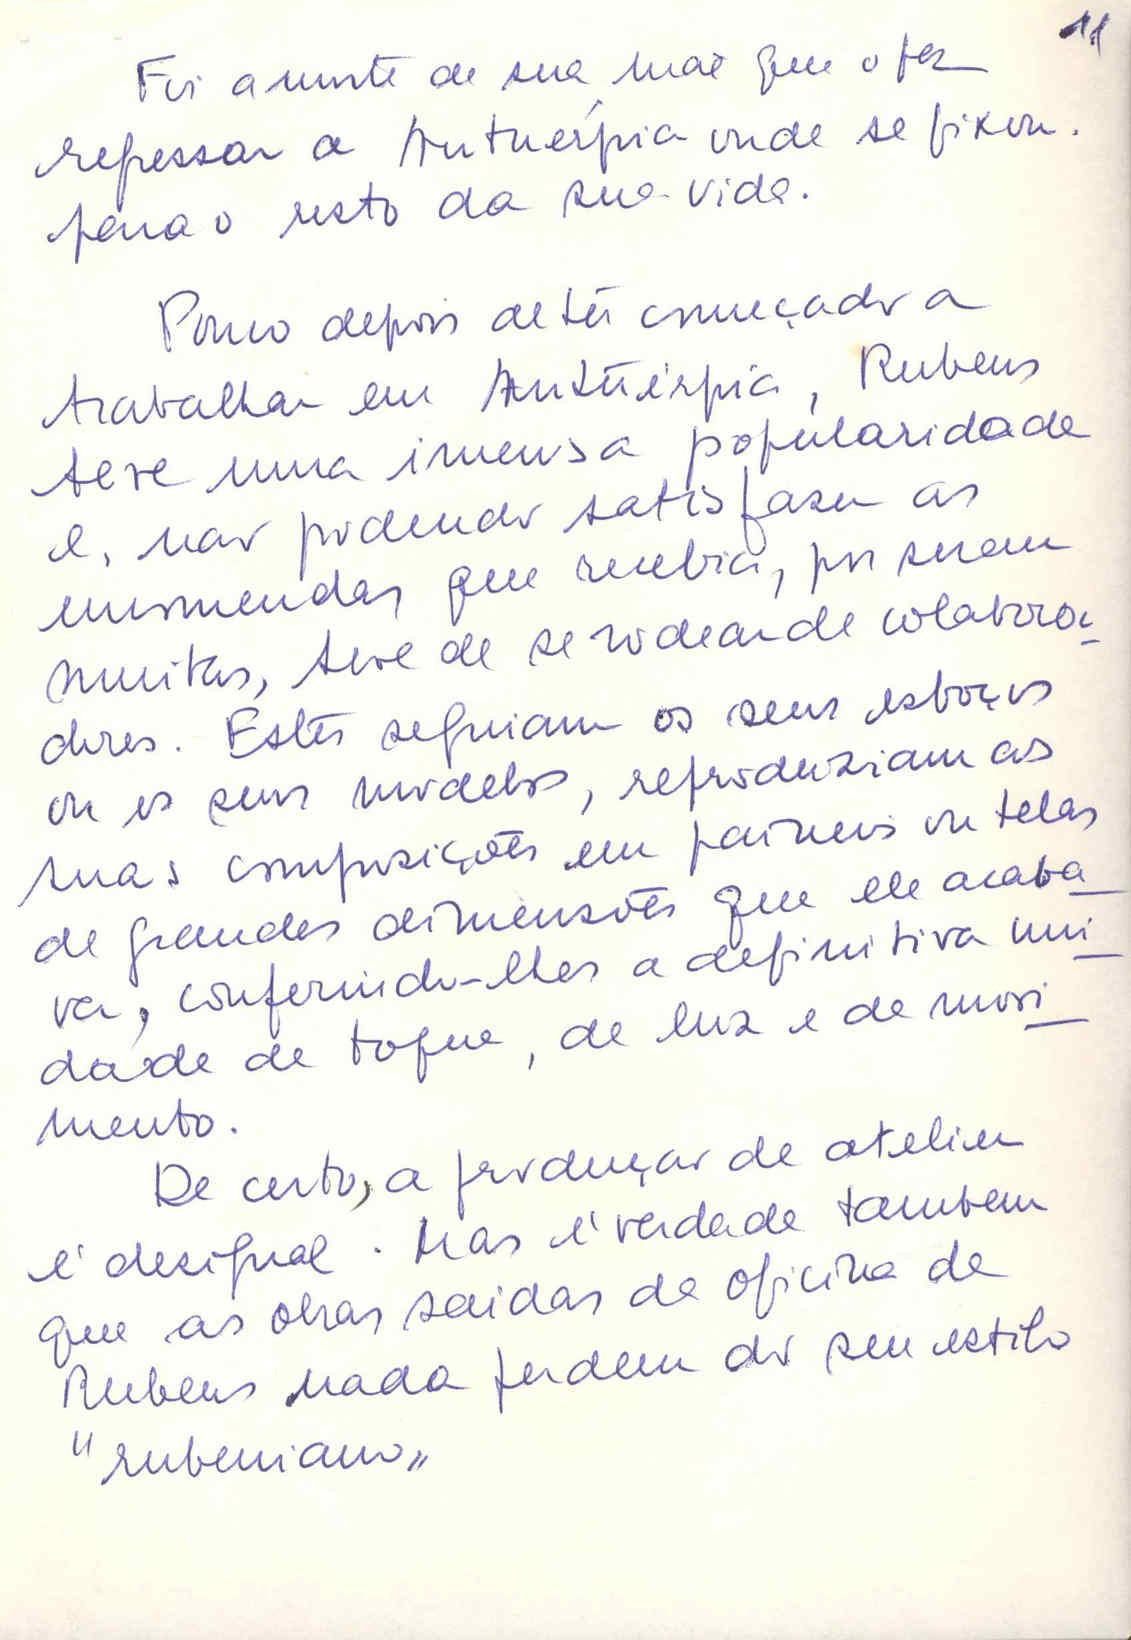 11
Foi a morte de sua mãe que o fez
regressar a Antuérpia onde se fixou.
para o resto da sua vida.
Pouco depois de ter começado a
trabalhar em Antuérpia, Rubens
teve uma imensa popularidade
e, não podendo satisfazer as
encomendas que recebia, por serem
muitas, teve de se rodear de colabora-
dores. Estes seguiam os seus esboços
ou os seus modelos, reproduziam as
suas composições em paineis ou telas
de grandes dimensões que ele acaba_
va, conferindo-lhes a definitiva uni_
dade de toque, de luz e de movi_
mento.
De certo, a produção de atelier
é desigual. Mas é verdade tambem
que as obras saidas da oficina de
Rubens nada perdem do seu estilo
"rubeniano"